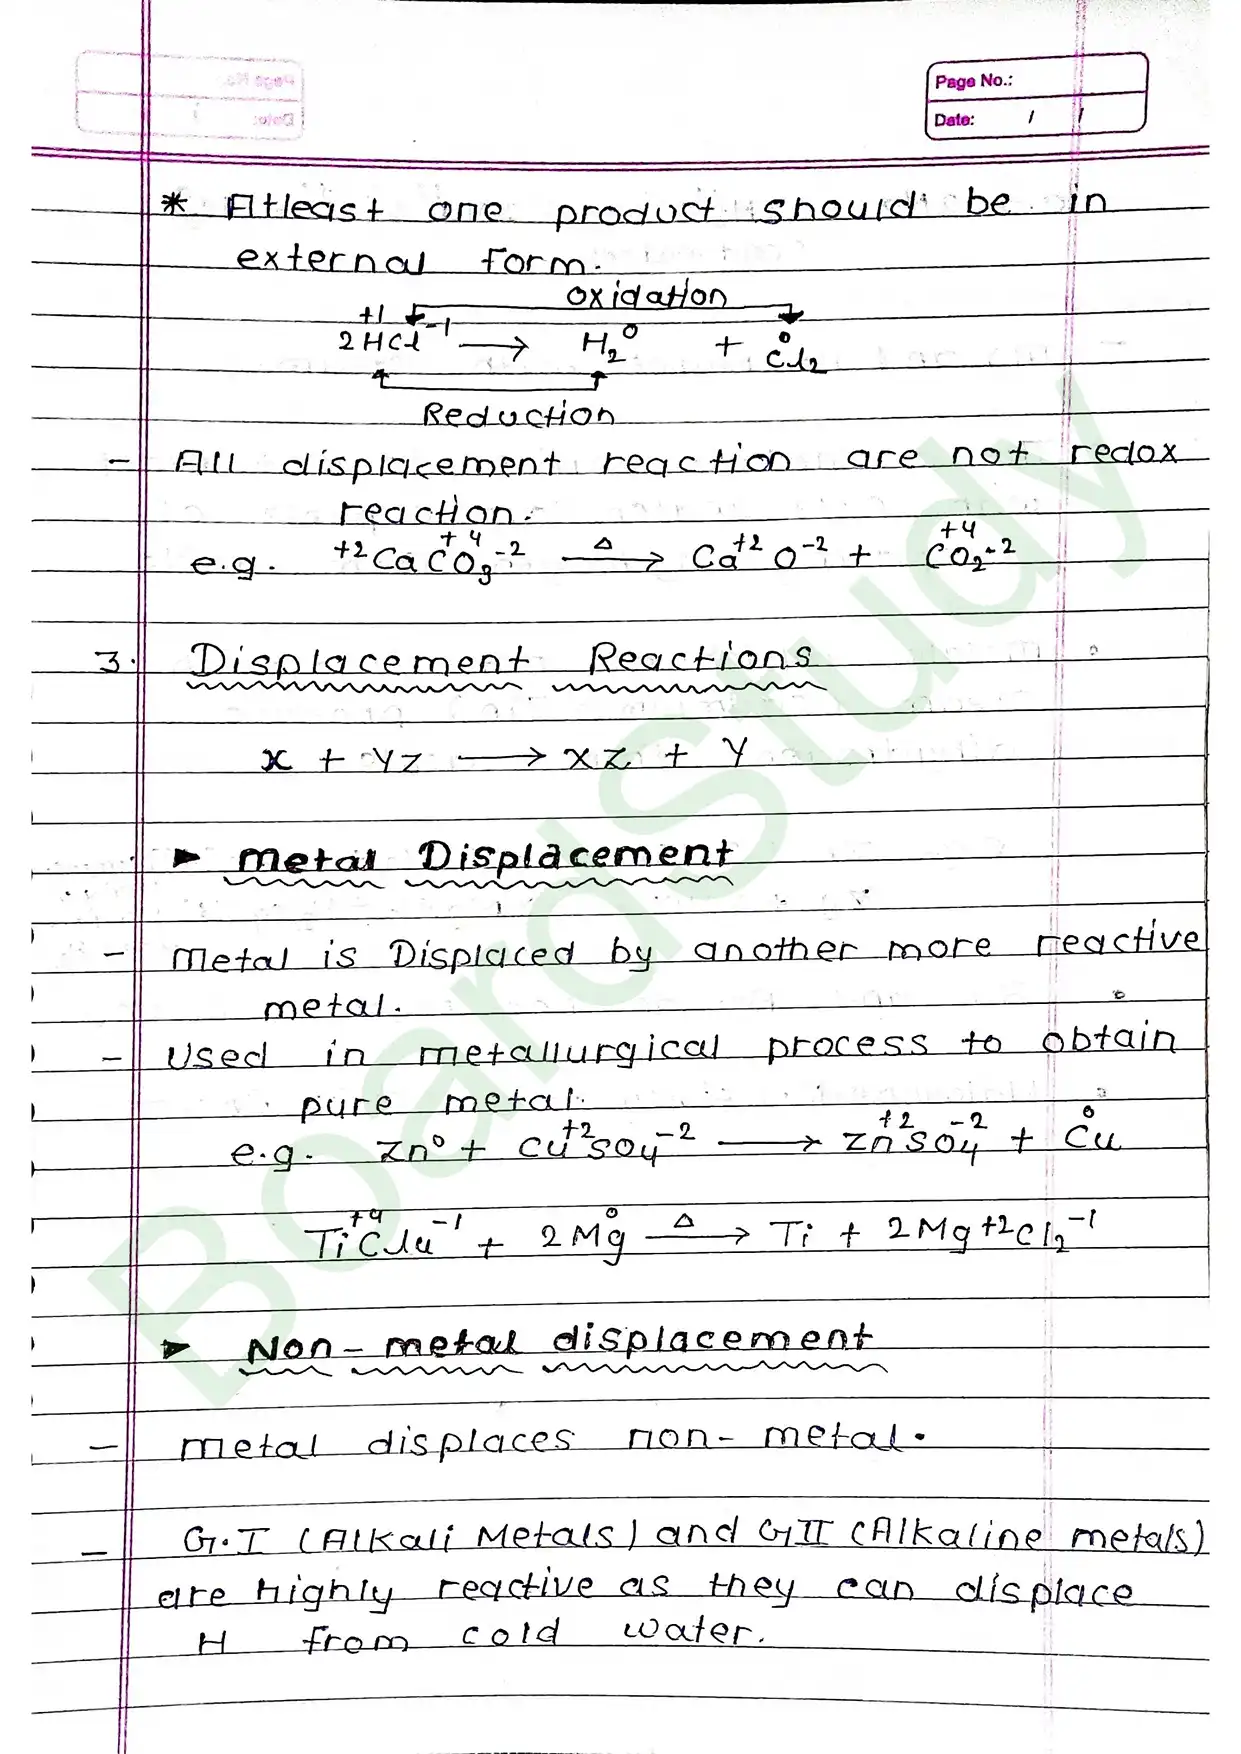 Page No.:
Date: / /
* Atleast one product should be in
external form.
oxidation
+1 -1 0 0
2HCl⁻¹ → H₂⁰ + Cl₂
Reduction
- All displacement reaction are not redox
reaction.
e.g. +2CaC⁺⁴O₃⁻² —Δ→ Ca⁺²O⁻² + C⁺⁴O₂⁻²
3. Displacement Reactions
x + yz → xz + y
➤ Metal Displacement
- Metal is Displaced by another more reactive
metal.
- Used in metallurgical process to obtain
pure metal.
e.g. Zn⁰ + Cu⁺²SO₄⁻² → Zn⁺²SO₄⁻² + Cu⁰
Ti⁺⁴Cl₄⁻¹ + 2Mg⁰ —Δ→ Ti + 2Mg⁺²Cl₂⁻¹
➤ Non-metal displacement
- Metal displaces non-metal.
- G.I (Alkali Metals) and GII (Alkaline metals)
are highly reactive as they can displace
H from cold water.
BoardStudy